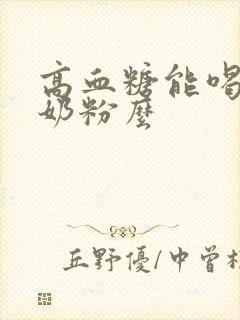 高血糖能喝
奶粉麼
丘野優/中曾根